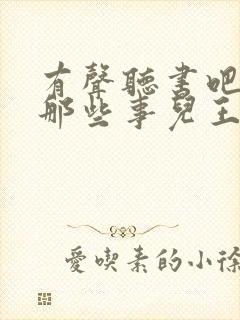 有聲聽書吧
那些事兒王
愛喫素的小徐